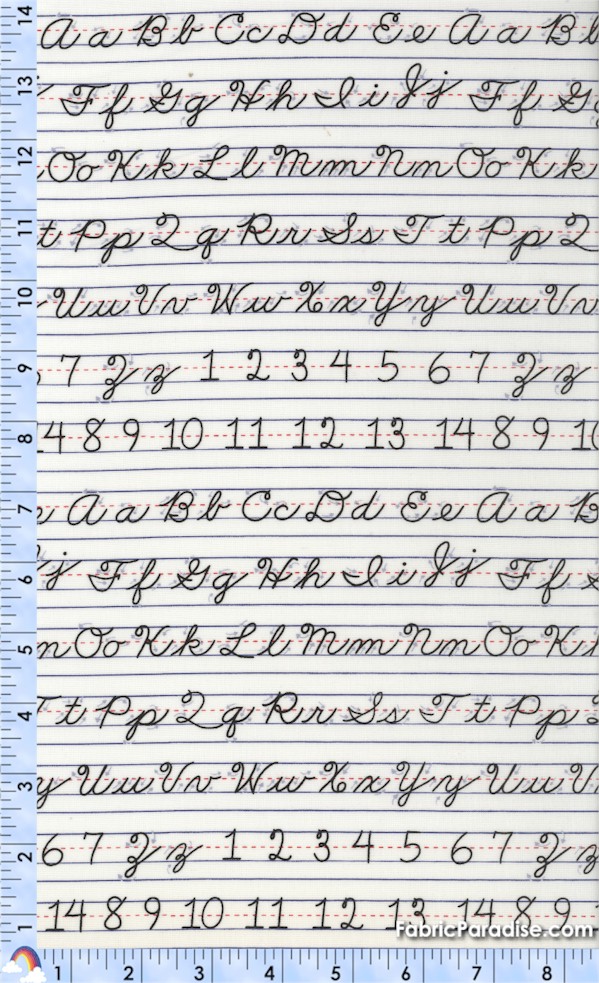 14 Aa Bb Cc Dd Ee Aa Bb
13 Ff Gg Hh Ii Jj Ff G
12 Oo Kk Ll Mm Nn Oo Kk
11 t Pp Qq Rr Ss Tt Pp Q
10 Uu Vv Ww Xx Yy Uu Vv
9 7 Zz 1 2 3 4 5 6 7 Zz
8 14 8 9 10 11 12 13 14 8 9 10
7 e Aa Bb Cc Dd Ee Aa B
6 j Ff Gg Hh Ii Jj Ff
5 n Oo Kk Ll Mm Nn Oo Kk
4 T t Pp Qq Rr Ss Tt Pp
3 y Uu Vv Ww Xx Yy Uu V
2 6 7 Zz 1 2 3 4 5 6 7 Zz
1 14 8 9 10 11 12 13 14 8 9 1
FabricParadise.com
1 2 3 4 5 6 7 8